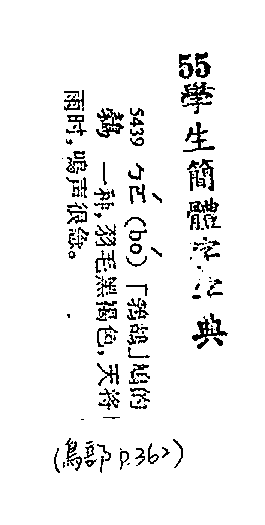 55學生簡體字字典
5439 ㄅㄛˊ (bó)「鹁鸪」鸠的
鹁 一种，羽毛黑褐色，天将下
雨时，鸣声很急。
(鳥部 p.362)